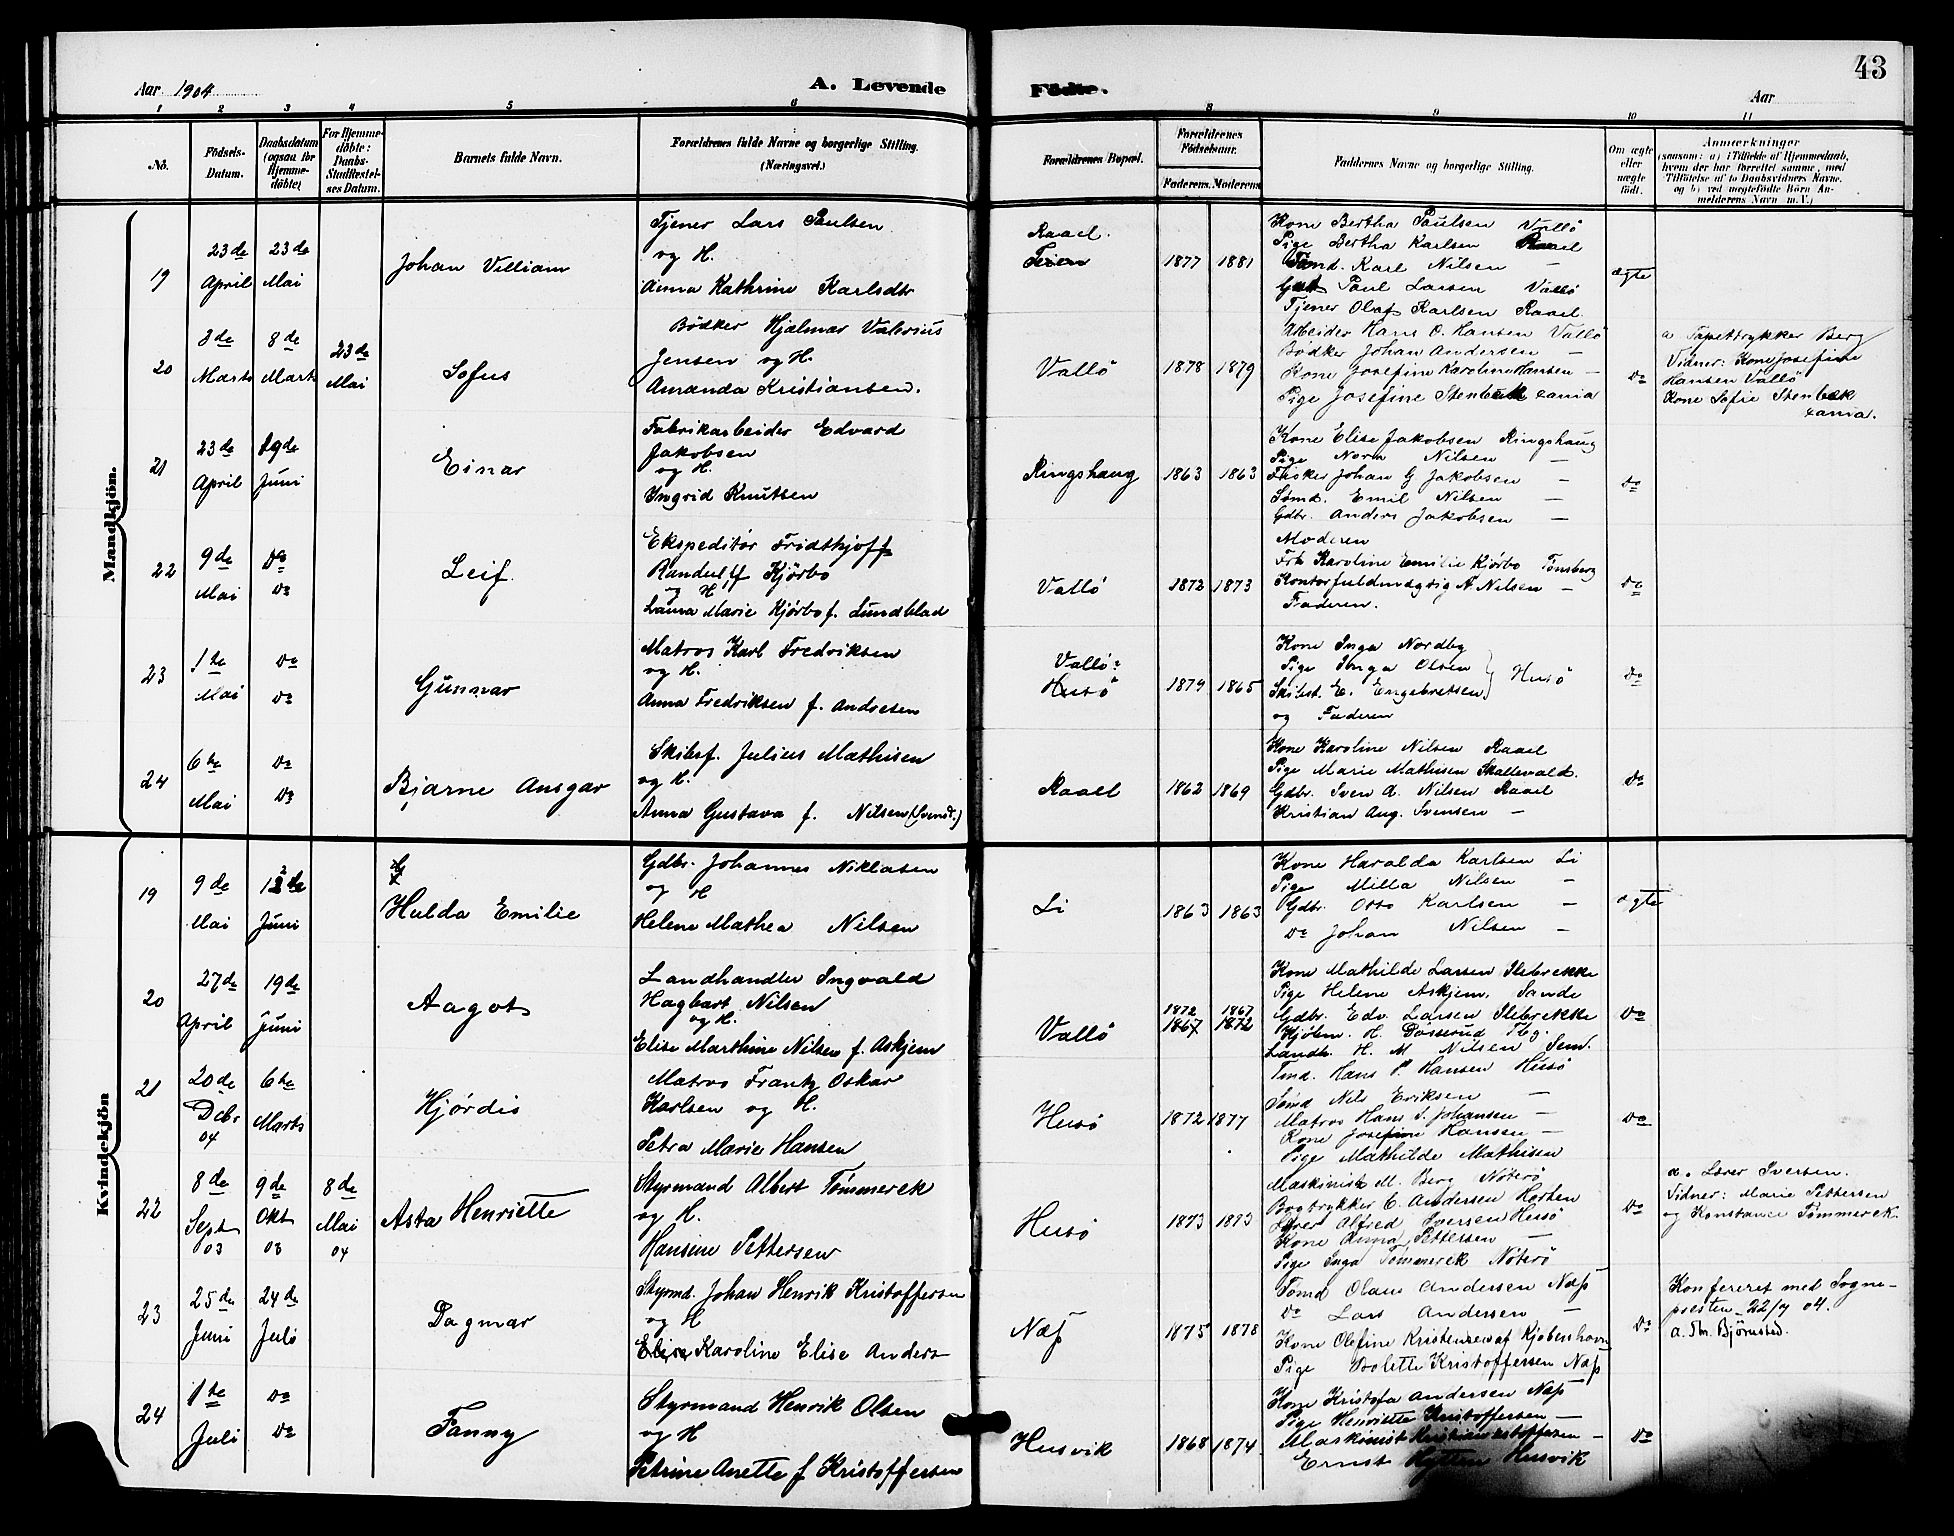 43
Aar 1904 A. Levende Födte. Aar
1 2 3 4 5 6 8 9 10 11
No.
Födsels-Datum.
Daabsdatum (ogsaa for Hjemmedöbte)
For Hjemmedöbte: Daabs-Stadfæstelses Datum.
Barnets fulde Navn.
Forældrenes fulde Navne og borgerlige Stilling. (Næringsvei.)
Forældrenes Bopæl.
Forældrenes Födselsaar.
Faderens. Moderens
Faddernes Navne og borgerlige Stilling.
Om ægte eller uægte födt.
Anmærkninger
(saasom: a) i Tilfælde af Hjemmedaab,
hvem der har forrettet samme, med
Tilföielse af to Daabsvidners Navne,
og b) ved uægtefödte Börn An-
melderens Navn m. V.)
Mandkjön.
19
23de April
23de Mai
Johan Villiam
Tjener Lars Paulsen
og H.
Anna Kathrine Karlsdtr
Raael.
Teien
1877 1881
Kone Bertha Paulsen Vallö
Pige Bertha Karlsen Raael
Tømd. Karl Nilsen —
Gdt Paul Larsen Vallö
Tjener Olaf Karlsen Raael
ægte
20
3de Marts
8de Marts
23de Mai
Sofus
Bödker Hjalmar Valerius
Jensen og H.
Amanda Kristiansen.
Vallö
1878 1879
Arbeider Hans O. Hansen Vallö
Bödker Johan Andersen —
Kone Josefine Karoline Hansen —
Pige Josefine Stenbæk
do
a Tapettrykker Berg
Vidner: Kone Josefine
Hansen Vallö
Kone Sofie Stenbæk
21
23de April
19de Juni
Einar
Fabrikarbeider Edvard
Jakobsen
og H.
Ingrid Knutsen
Ringshaug
1863 1863
Kone Elise Jakobsen Ringshaug
Pige Nora Nilsen —
Fisker Johan G Jakobsen —
Sømd. Emil Nilsen —
Gdbr. Anders Jakobsen —
do
22
9de Mai
do do
Leif.
Ekspeditör Fridthjoff
Randulff Kjörbo
og H
Laura Marie Kjörbo f. Lundblad
Vallö
1872 1873
Moderen
Frk Karoline Emilie Kjörbo Tønsberg
Kontorfuldmægtig A. Nilsen —
Faderen.
do
23
1ste Mai
do do
Gunnar
Matros Karl Fredriksen
og H.
Anna Fredriksen f. Andresen
Vallö:
Husö
1879 1865
Kone Inga Nordby
Pige Inga Olsen
Skibst. E. Engebretsen
og Faderen
Husö
do
24
6te Mai
do do
Bjarne Ansgar
Skibsf. Julius Mathisen
og H.
Anna Gustava f. Nilsen (Svensd.)
Raael
1862 1869
Kone Karoline Nilsen Raael
Pige Marie Mathisen Skallevald.
Gdbr. Sven A. Nilsen Raael
Kristian Aug. Svensen —
do
Kvindekjön
19
9de Mai
12te Juni
Hulda Emilie
Gdbr. Johannes Niklasen
og H
Helene Mathea Nilsen
Li
1863 1863
Kone Haralda Karlsen Li
Pige Milla Nilsen —
Gdbr. Otto Karlsen —
do Johan Nilsen —
ægte
20
27de April
19de Juni
Aagot
Landhandler Ingvald
Hagbart Nilsen
og H.
Elise Marthine Nilsen f. Askjem
Vallö
1872 1867
1867 1872
Kone Mathilde Larsen Slebrekke
Pige Helene Askjem, Sande
Gdbr. Edv. Larsen Slebrekke
Kjöbm. H. Døsserud Tbg.
Landh. H. M Nilsen Sem.
do
21
20de Decbr 04
6te Marts
Hjördis
Matros Frantz Oskar
Karlsen og H.
Petra Marie Hansen
Husö
1872 1877
Tmd. Hans P. Hansen Husö
Sømd Nils Eriksen —
Matros Hans S. Johansen —
Kone Josefine Hansen —
Pige Mathilde Mathisen
do
22
8de Sept 03
9de Okt 03
8de Mai 04
Asta Henriette
Styrmand Albert Tömmerek
og H.
Hansine Pettersen
Husö
1873 1873
Maskinist M. Berg Nöterö
Bogtrykker C. Andersen Horten
Lærer Alfred Iversen Husö
Kone Anna Pettersen —
Pige Inga Tömmerek Nöterö
do
a. Lærer Iversen.
Vidner: Marie Pettersen
og Konstance Tömmerek.
23
25de Juni
24de Juli
Dagmar
Styrmd. Johan Henrik Kristoffersen
og H
Elise Karoline Elise Anders
Næs
1875 1878
Tømd Olaus Andersen Næs
do Lars Andersen —
Kone Olefine Kristensen af Kjöbenhavn
Pige Bolette Kristoffersen Næs
do
Konfereret med Sogne-
presten 22/7 04.
a. Th. Björnsted.
24
1ste Juli
do do
Fanny
Styrmand Henrik Olsen
og H
Petrine Anette f Kristoffersen
Husvik
1868 1874
Kone Kristofa Andersen Næs
Pige Henriette Kristoffersen —
Maskinist Kristian Kristoffersen —
Ernst Hytten Husvik
do